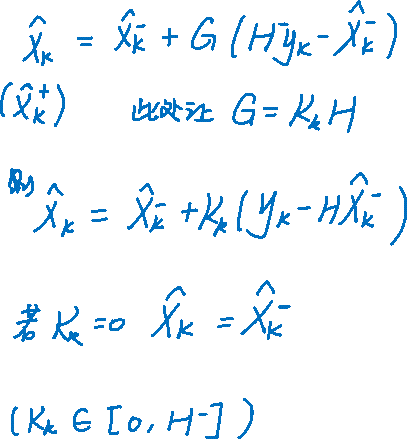 X̂ₖ = X̂ₖ⁻ + G (H⁻yₖ - X̂ₖ⁻)
(X̂ₖ⁺) 此处让 G = KₖH
则 X̂ₖ = X̂ₖ⁻ + Kₖ(yₖ - HX̂ₖ⁻)
若 Kₖ = 0 X̂ₖ = X̂ₖ⁻
(Kₖ ∈ [0, H⁻])